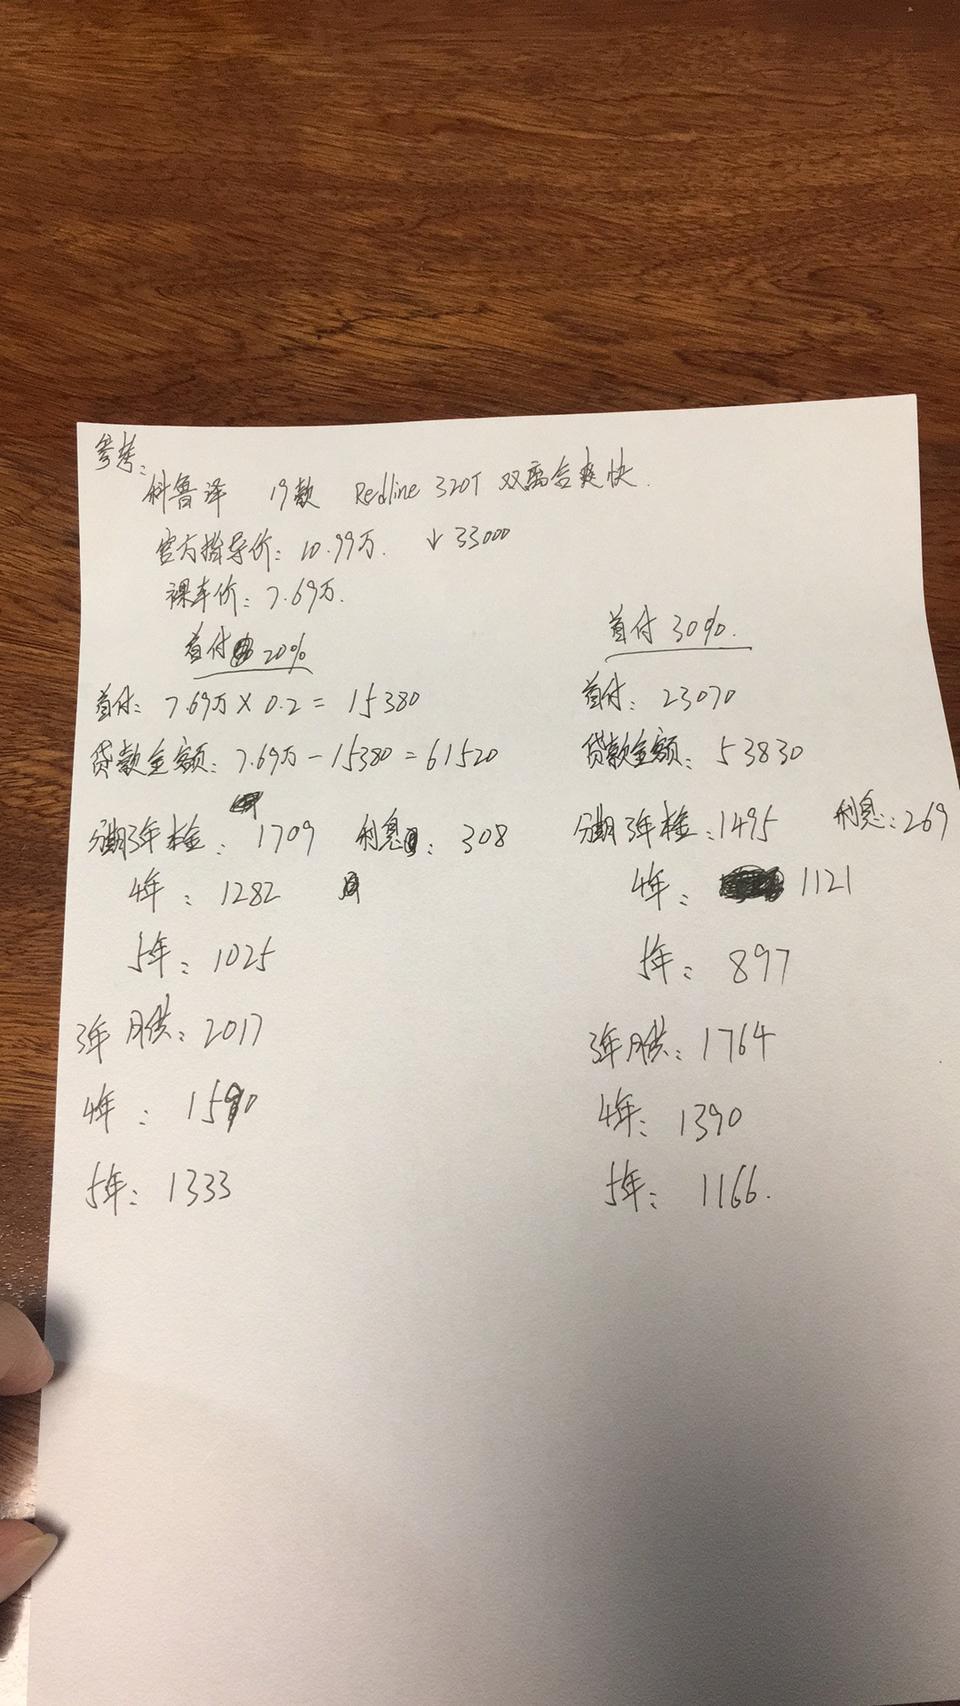 参考：
科鲁泽 19款 Redline 320T 双离合爽快.
官方指导价：10.99万. ↓33000
裸车价：7.69万.
首付 20%
首付：7.69万×0.2=15380
贷款金额：7.69万-15380=61520
分期3年本金：1709 利息：308
4年：1282
5年：1025
3年月供：2017
4年：1590
5年：1333
首付 30%.
首付：23070
贷款金额：53830
分期3年本金：1495 利息：269
4年：1121
5年：897
3年月供：1764
4年：1390
5年：1166.